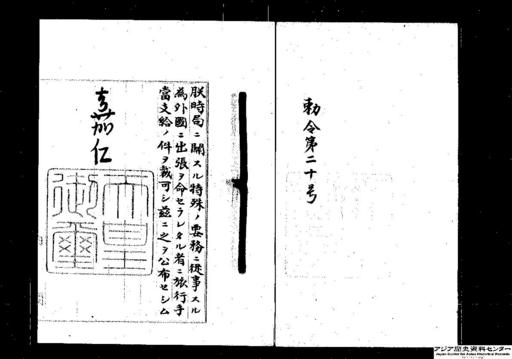 勅令第二十号
朕時局ニ関スル特殊ノ要務ニ従事スル
為外國ニ出張ヲ命セラレタル者ニ旅行手
當支給ノ件ヲ裁可シ茲ニ之ヲ公布セシム
嘉仁
天皇
御璽
アジア歴史資料センター
Japan Center for Asian Historical Records